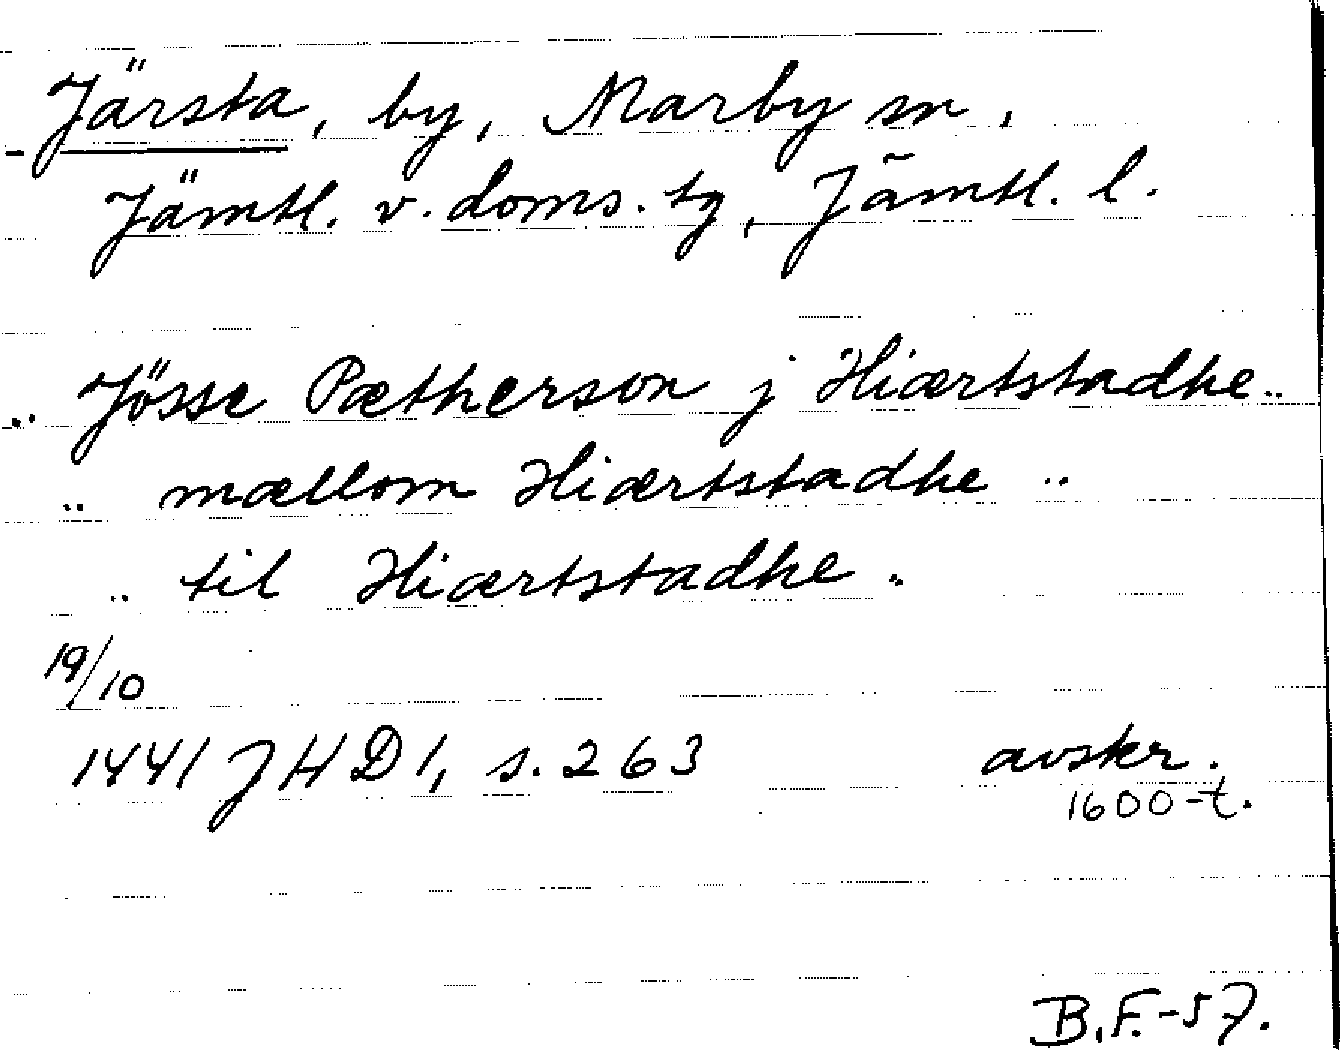 Järsta, by, Marby sn,
Jämtl. v. doms. tg, Jämtl. l.
.. Jösse Pætherson j Hiærtstadhe ..
.. mællom Hiærtstadhe ..
.. til Hiærtstadhe ..
19/10
1441 JHD 1, s. 263 avskr.
1600-t.
B.F.-57.